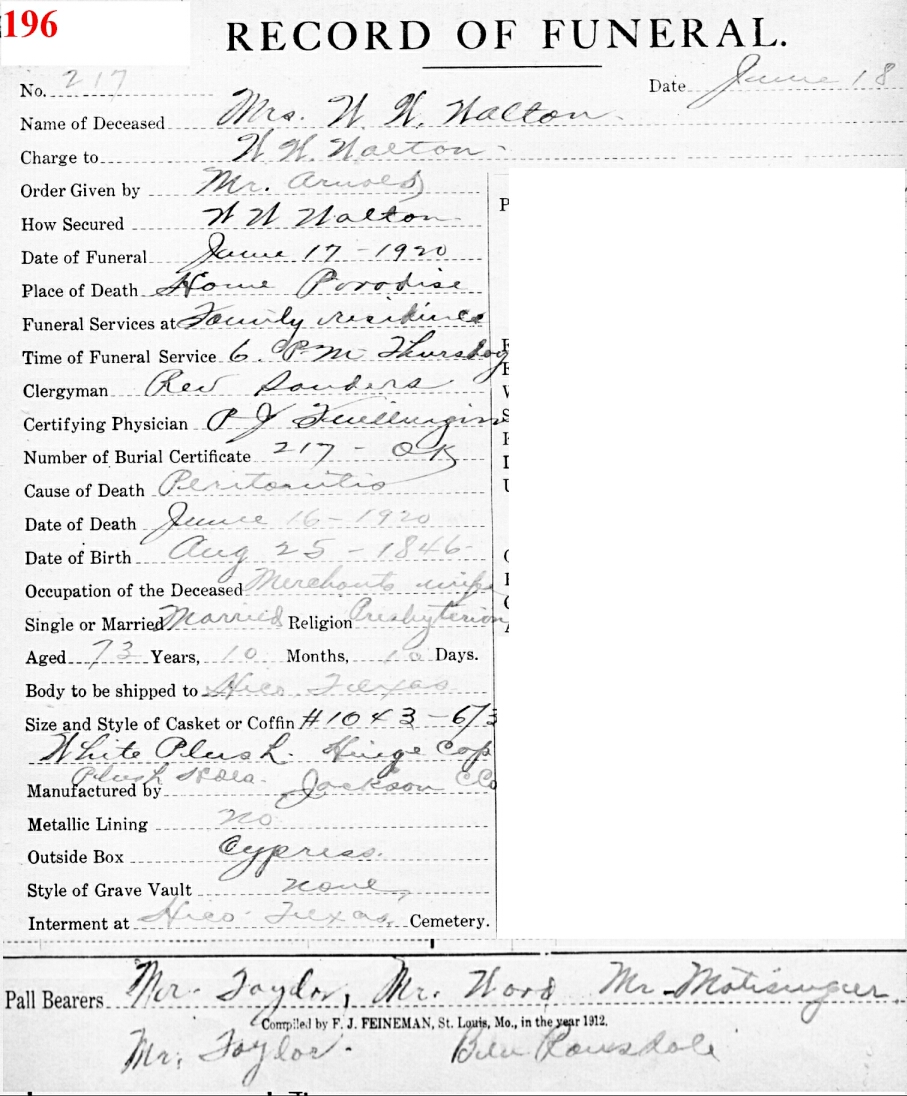 196
RECORD OF FUNERAL.
No. 217 Date June 18
Name of Deceased Mrs. W. W. Walton
Charge to W. W. Walton
Order Given by Mr. Arnold
P
How Secured W W Walton
Date of Funeral June 17-1920
Place of Death Home Paradise
Funeral Services at Family residence
Time of Funeral Service 6 PM Thursday
Clergyman Rev Sanders
Certifying Physician P J
Number of Burial Certificate 217 - OK
Cause of Death Peritonitis
Date of Death June 16-1920
Date of Birth Aug 25-1846
Occupation of the Deceased Merchants wife
Single or Married Married Religion Presbyterian
Aged 73 Years, 10 Months, 10 Days.
Body to be shipped to Hico Texas
Size and Style of Casket or Coffin #1043-6/3
White Plush Hinge Cap
Plush
Manufactured by Jackson C Co
Metallic Lining no
Outside Box Cypress.
Style of Grave Vault none
Interment at Hico Texas. Cemetery.
Pall Bearers Mr. Taylor, Mr. Wood Mr
Compiled by F. J. FEINEMAN, St. Louis, Mo., in the year 1912.
Mr. Taylor. Ben